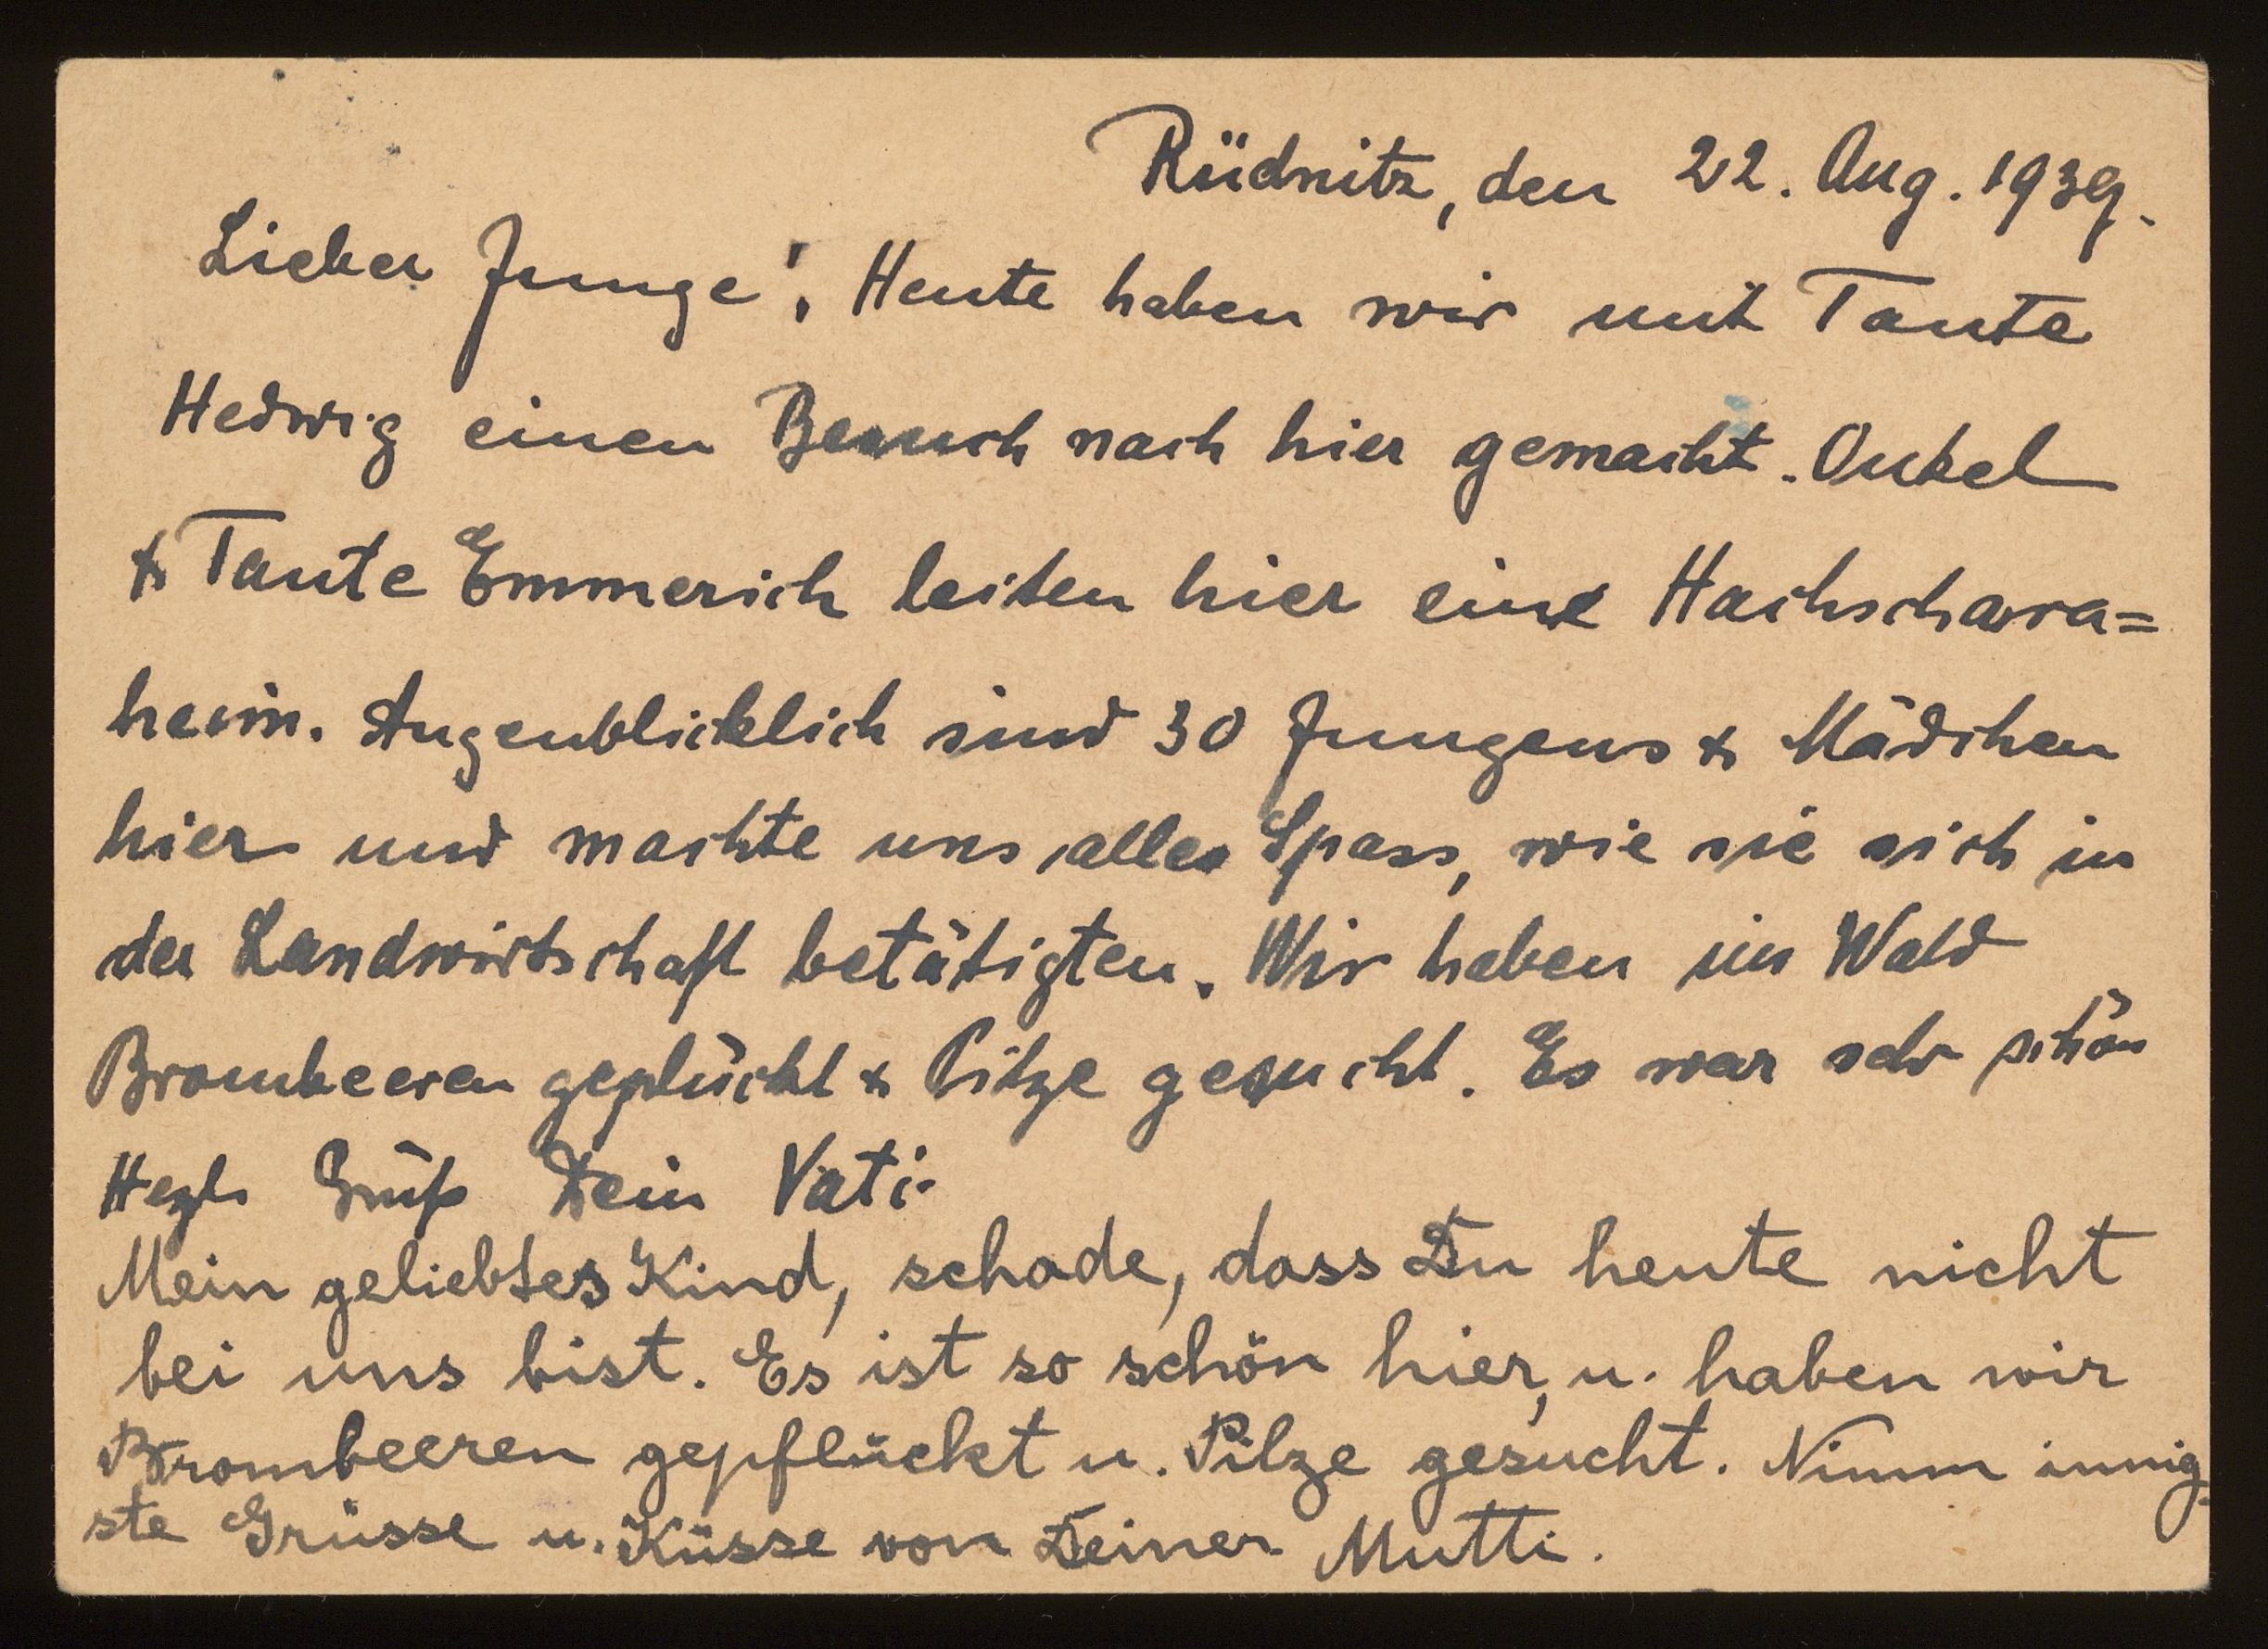 Rüdnitz, den 22. Aug. 1939.
Lieber Junge! Heute haben wir mit Tante
Hedwig einen Besuch nach hier gemacht. Onkel
& Tante Emmerich leiten hier eine Hachschara=
heim. Augenblicklich sind 30 Jungens & Mädchen
hier und machte uns alles Spass, wie sie sich in
der Landwirtschaft betätigten. Wir haben im Wald
Brombeeren geplückt & Pilze gesucht. Es war sehr schön
Hezl. Gruß Dein Vati.
Mein geliebtes Kind, schade, dass Du heute nicht
bei uns bist. Es ist so schön hier, u. haben wir
Brombeeren gepflückt u. Pilze gesucht. Nimm innig-
ste Grüsse u. Küsse von Deiner Mutti.